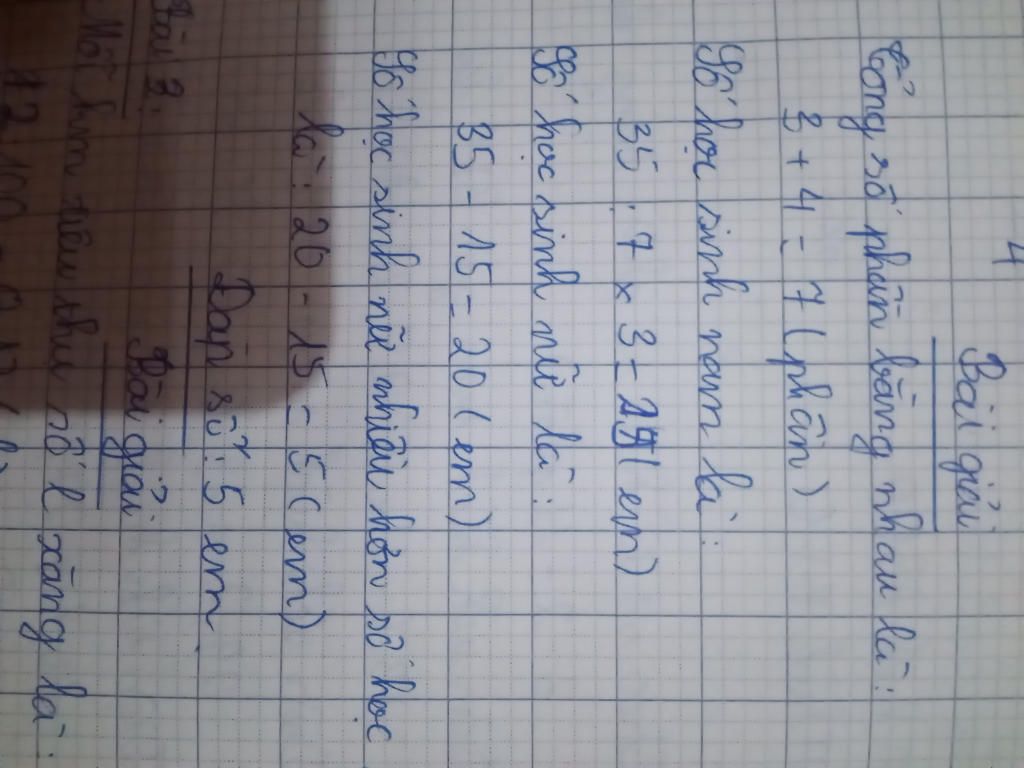 4
Bài giải
Tổng số phần bằng nhau là:
3 + 4 = 7 (phần)
Số học sinh nam là:
35 : 7 x 3 = 15 (em)
Số học sinh nữ là:
35 - 15 = 20 (em)
Số học sinh nữ nhiều hơn số học
là: 20 - 15 = 5 (em)
Đáp số: 5 em
Bài 2:
Bài giải
Một tiêu thụ số l xăng là:
12 : 100